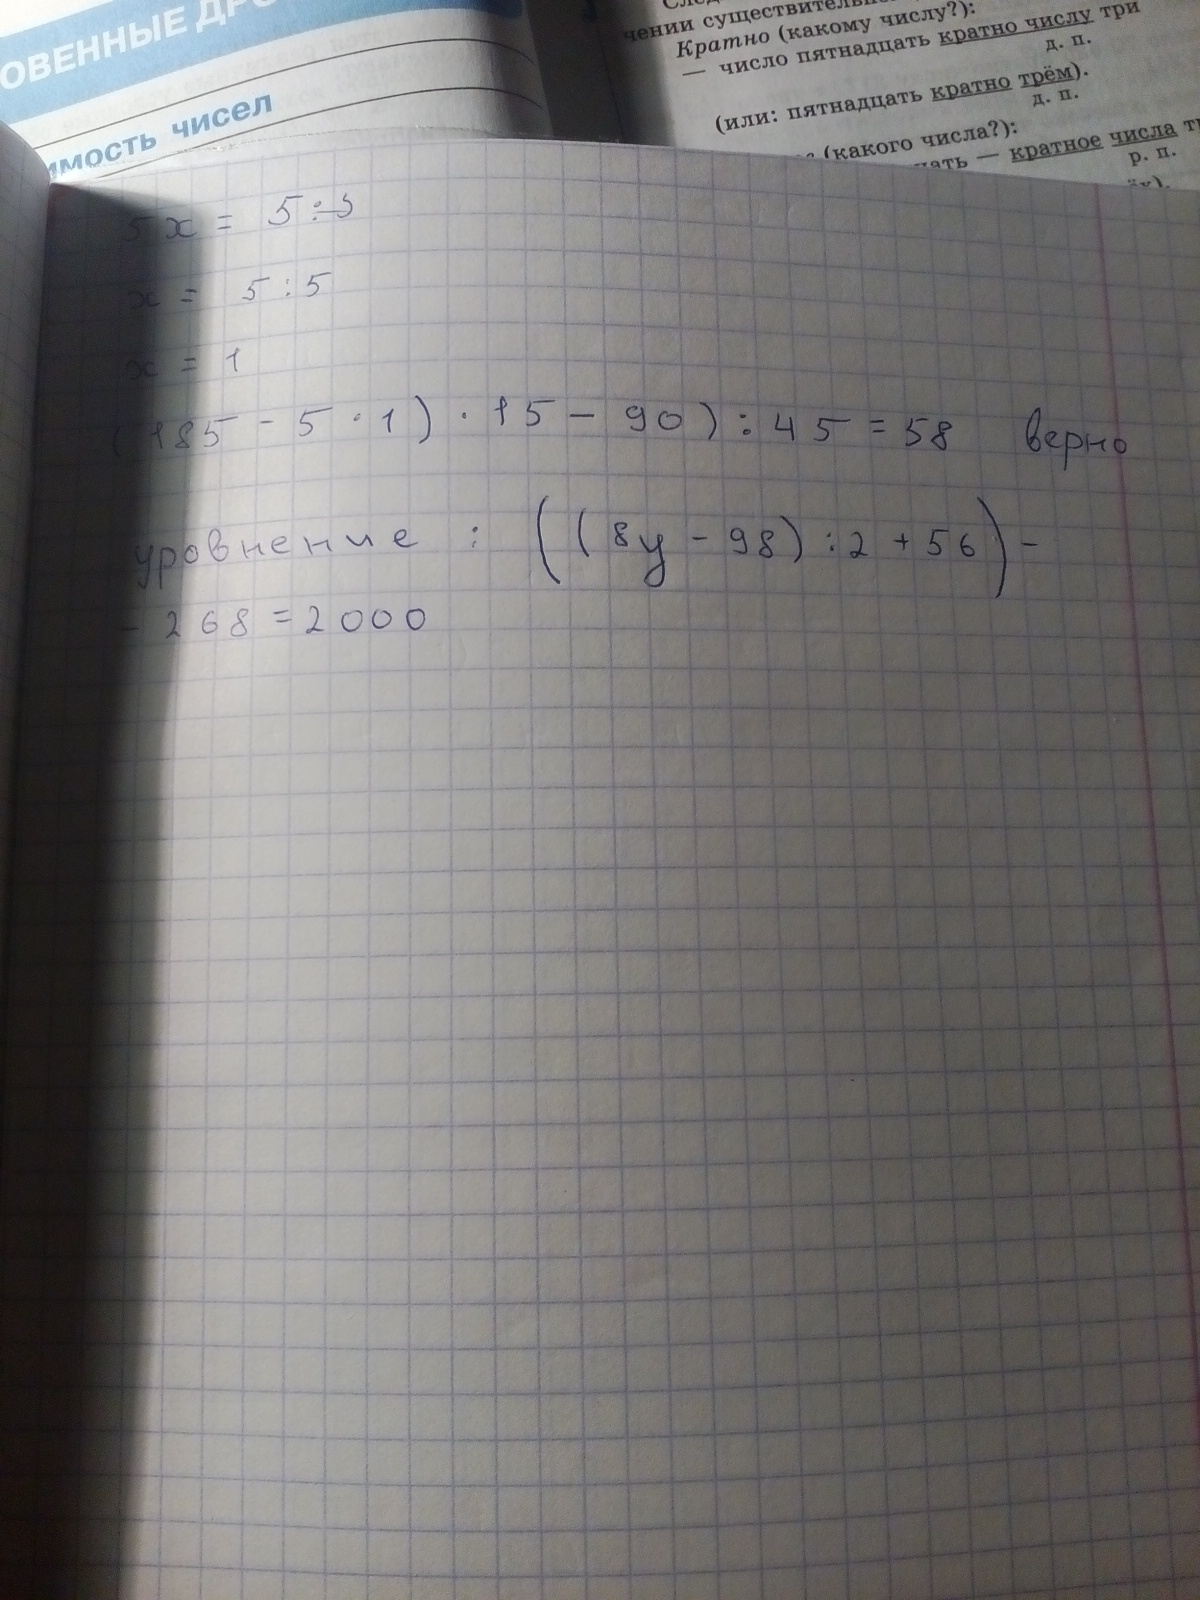 ОВЕННЫЕ ДРО
имость чисел
чении существительн
Кратно (какому числу?):
— число пятнадцать кратно числу три
д. п.
(или: пятнадцать кратно трём).
д. п.
(какого числа?):
— кратное числа
р. п.
5x = 5
x = 5 : 5
x = 1
(185 - 5 · 1) · 15 - 90) : 45 = 58 верно
уровнение : ((8y - 98) : 2 + 56) -
- 268 = 2000